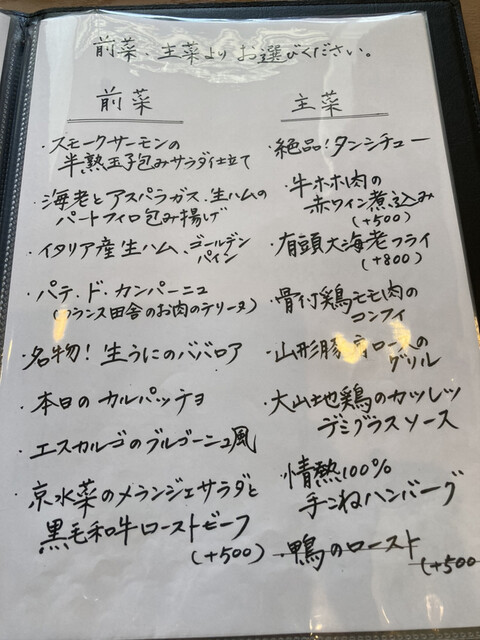 前菜、主菜よりお選びください。
前菜
・スモークサーモンの
半熟玉子包みサラダ仕立て
・海老とアスパラガス、生ハムの
パートフィロ包み揚げ
・イタリア産生ハム、ゴールデン
パイン
・パテ・ド・カンパーニュ
(フランス田舎のお肉のテリーヌ)
・名物!生うにのババロア
・本日のカルパッチョ
・エスカルゴのブルゴーニュ風
・京水菜のメランジェサラダと
黒毛和牛ローストビーフ
(+500)
主菜
・絶品!タンシチュー
・牛ホホ肉の
赤ワイン煮込み
(+500)
・有頭大海老フライ
(+800)
・骨付鶏モモ肉の
コンフィ
・山形豚肩ロースの
グリル
・大山地鶏のカツレツ
デミグラスソース
・情熱100%
手こねハンバーグ
・鴨のロースト
(+500